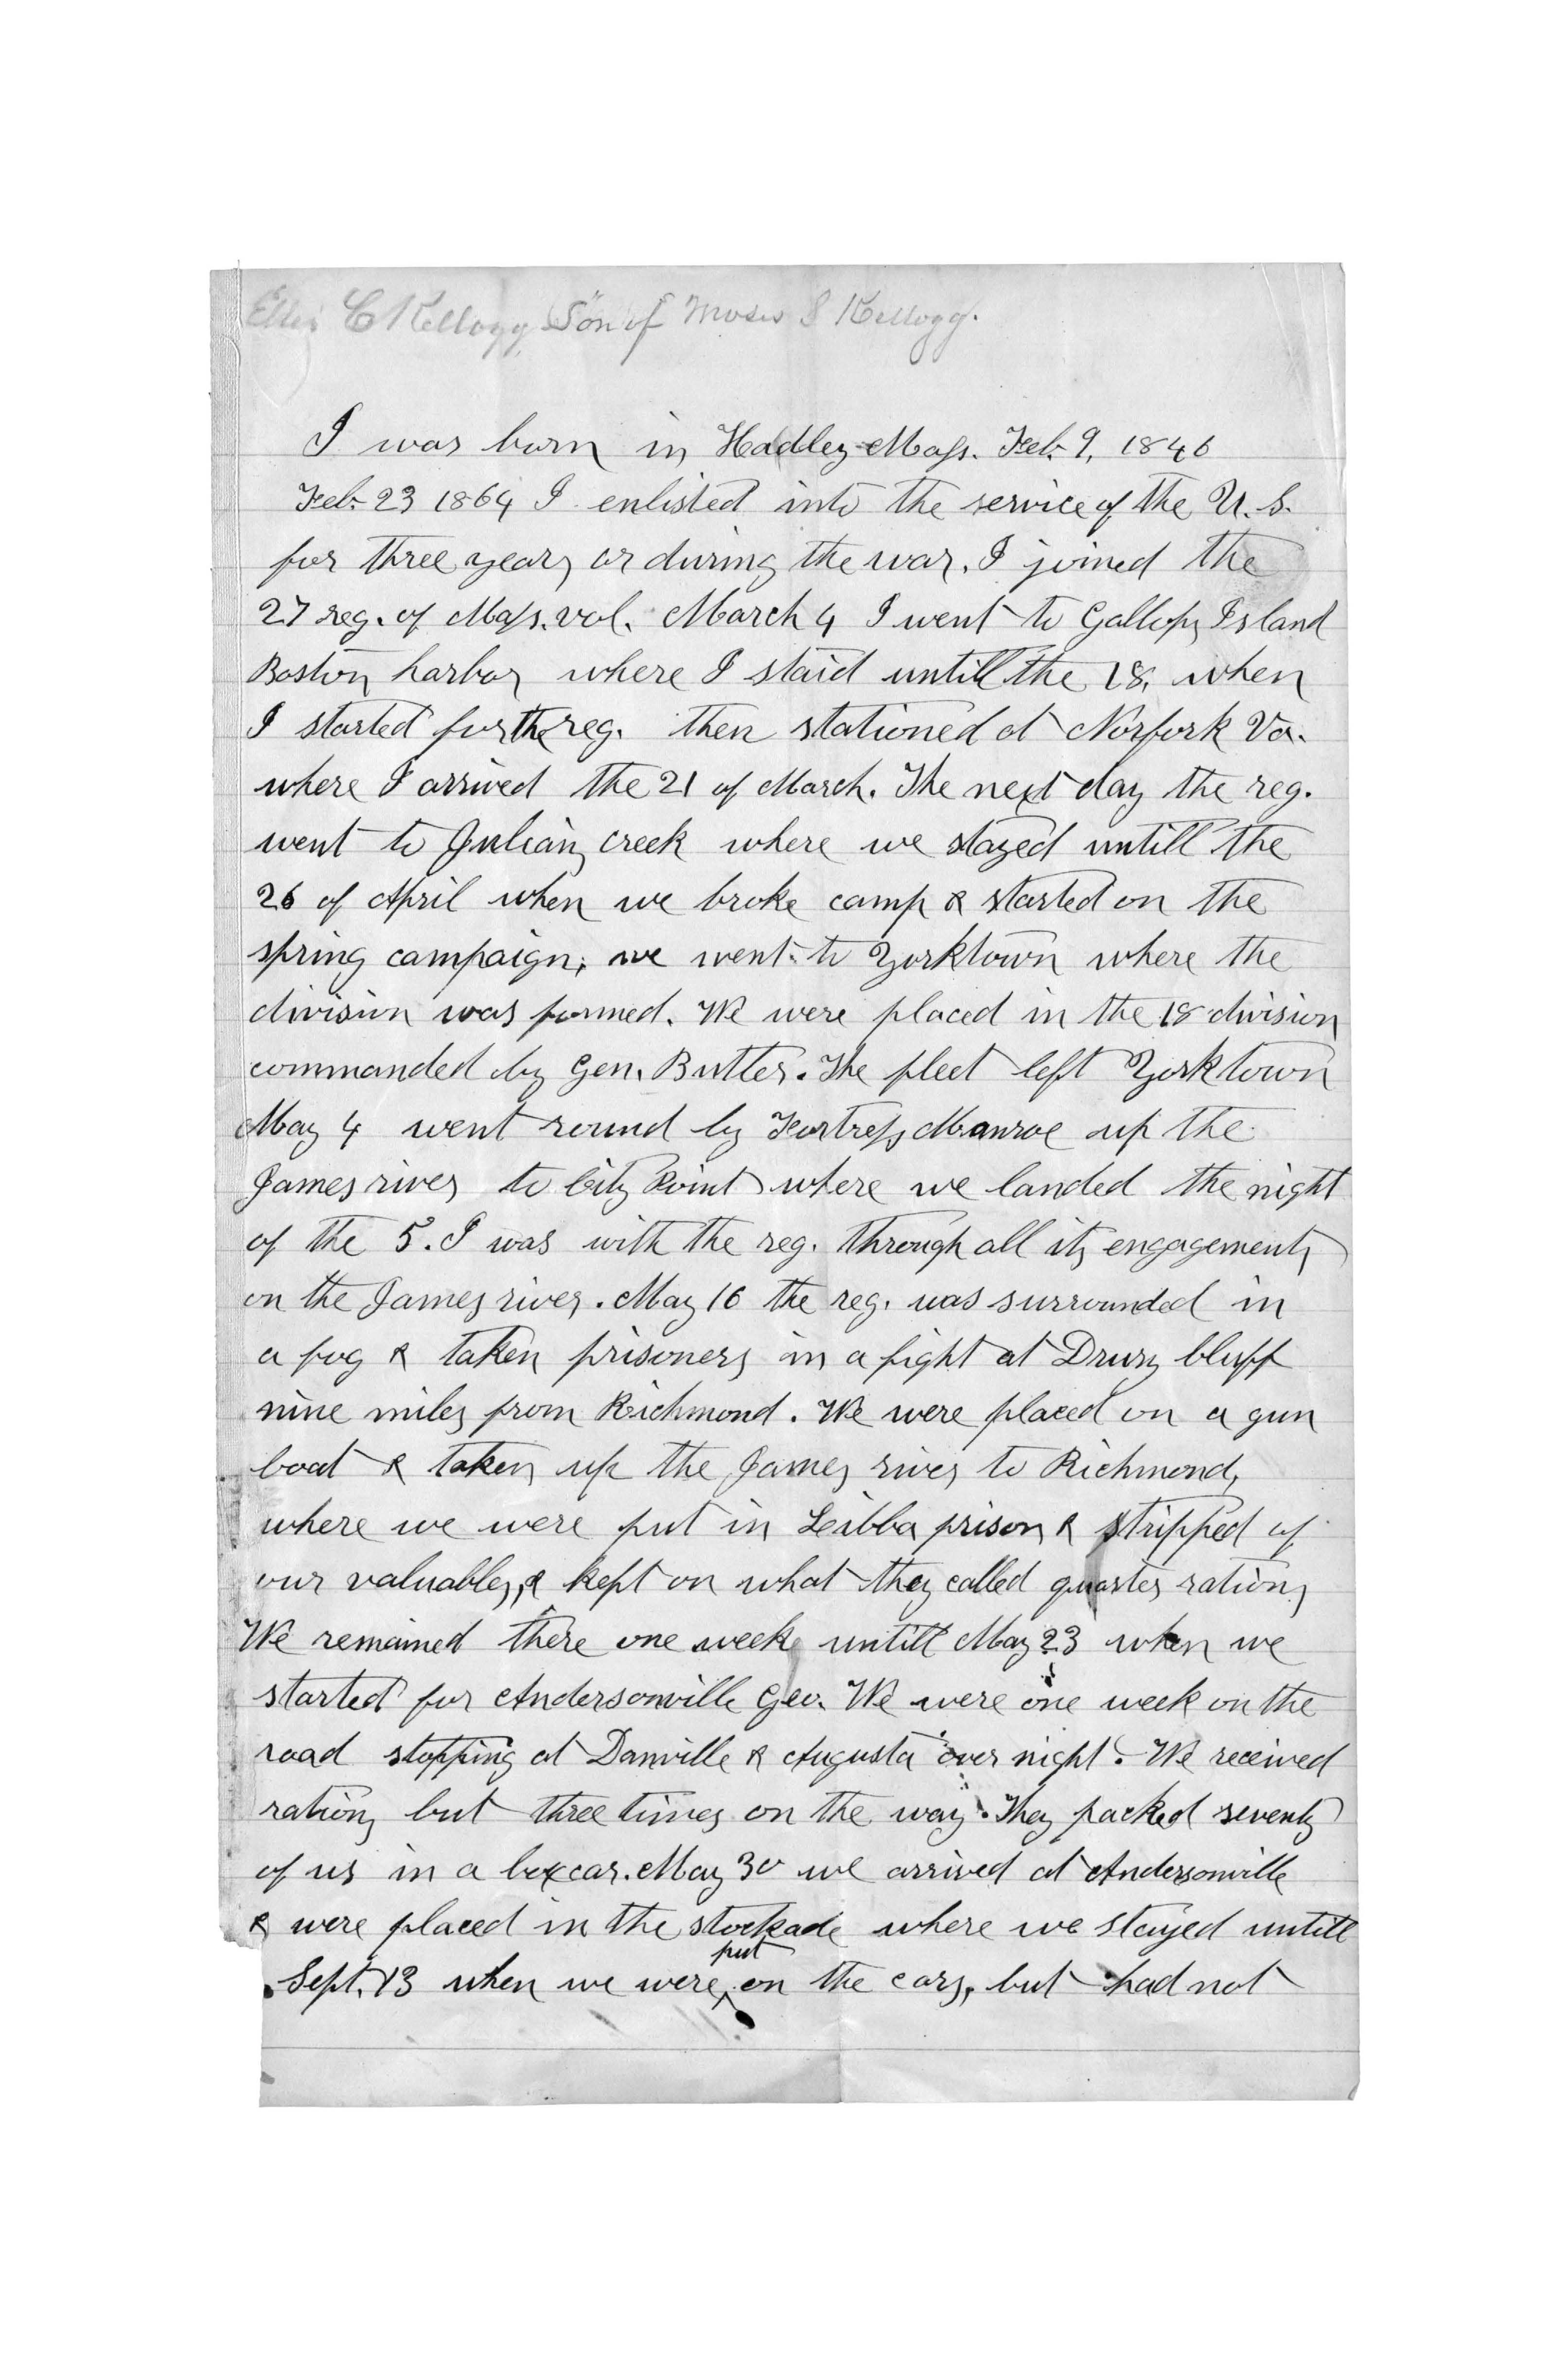 Ellis C Kellogg Son of Moses S Kellogg.
I was born in Hadley Mass. Feb. 9, 1846
Feb. 23 1864 I enlisted into the service of the U.S.
for three years or during the war. I joined the
27 reg. of Mass. vol. March 4 I went to Gallops Island
Boston harbor where I staid untill the 18, when
I started for the reg. then stationed at Norfork Va.
where I arrived the 21 of March. The next day the reg.
went to Julians creek where we stayed untill the
26 of April when we broke camp & started on the
spring campaign; we went to Yorktown where the
division was formed. We were placed in the 18 division
commanded by Gen. Butler. The fleet left Yorktown
May 4 went round by Fortress Monroe up the
James river to City Point where we landed the night
of the 5. I was with the reg. through all its engagements
on the James river. May 16 the reg. was surrounded in
a fog & taken prisoners in a fight at Drury bluff
nine miles from Richmond. We were placed on a gun
boat & taken up the James river to Richmond,
where we were put in Leibba prison & stripped of
our valuables, & kept on what they called quarter rations
We remained there one week untill May 23 when we
started for Andersonville Geo. We were one week on the
road stopping at Danville & Augusta over night. We received
rations but three times on the way. They packed seventy
of us in a box car. May 30 we arrived at Andersonville
& were placed in the stockade where we stayed untill
Sept. 13 when we were put on the cars, but had not